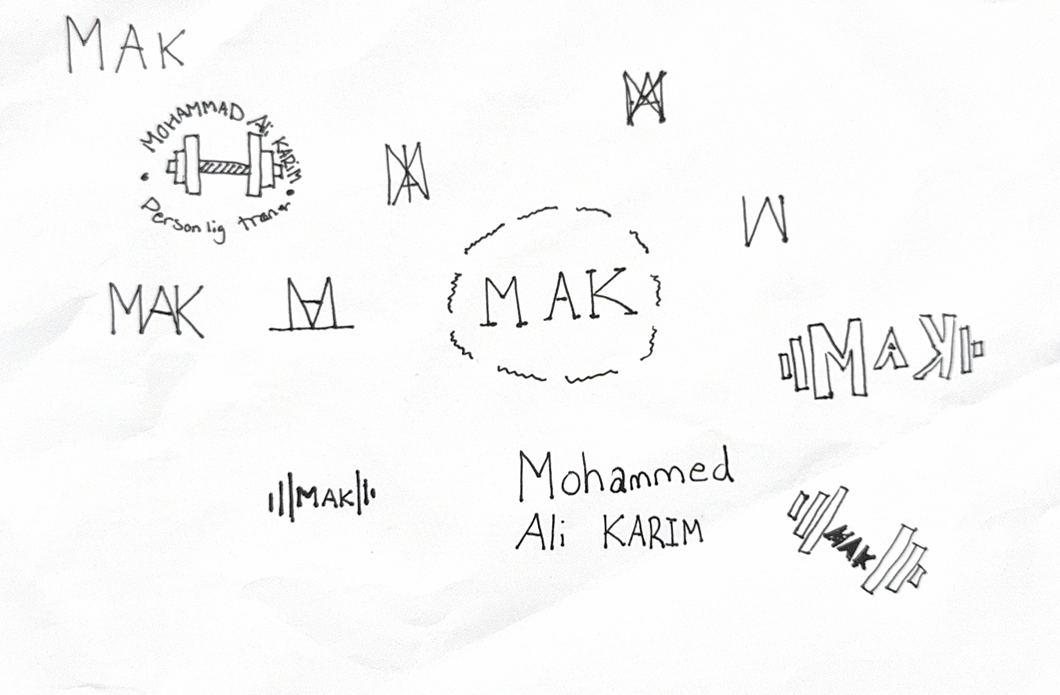 MAK
MOHAMMAD Ali KARIM
Personlig
MAK
M
MAK
MAK
MAK
Mohammed
Ali KARIM
MAK